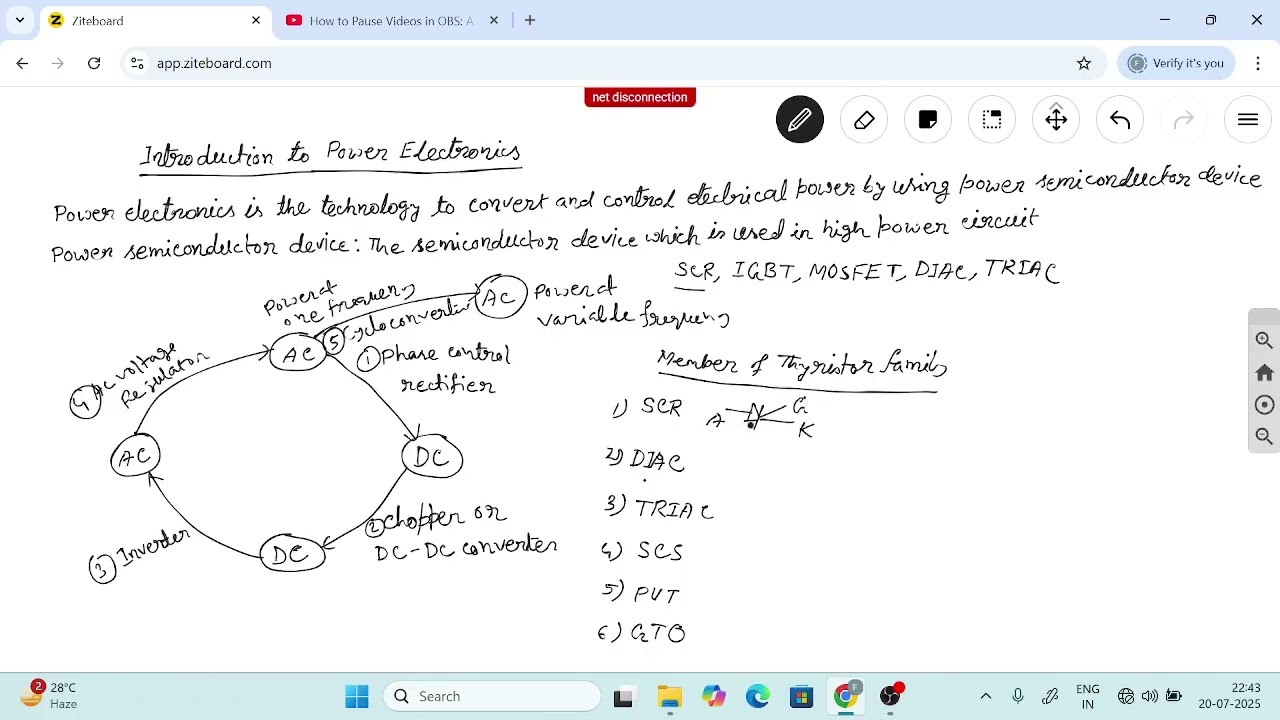 Ziteboard
How to Pause Videos in OBS: A
app.ziteboard.com
Verify it's you
net disconnection
Introduction to Power Electronics
Power electronics is the technology to convert and control electrical power by using power semiconductor device
Power semiconductor device: The semiconductor device which is used in high power circuit
SCR, IGBT, MOSFET, DIAC, TRIAC
Power at
one frequency
AC
Power at
variable frequency
5 Cycloconverter
AC
1 Phase control
rectifier
4 AC voltage
Regulator
AC
DC
2 Chopper or
DC-DC converter
DC
3 Inverter
Member of Thyristor family
1) SCR
A
G
K
2) DIAC
3) TRIAC
4) SCS
5) PUT
6) GTO
2
28°C
Haze
Search
F
ENG
IN
22:43
20-07-2025